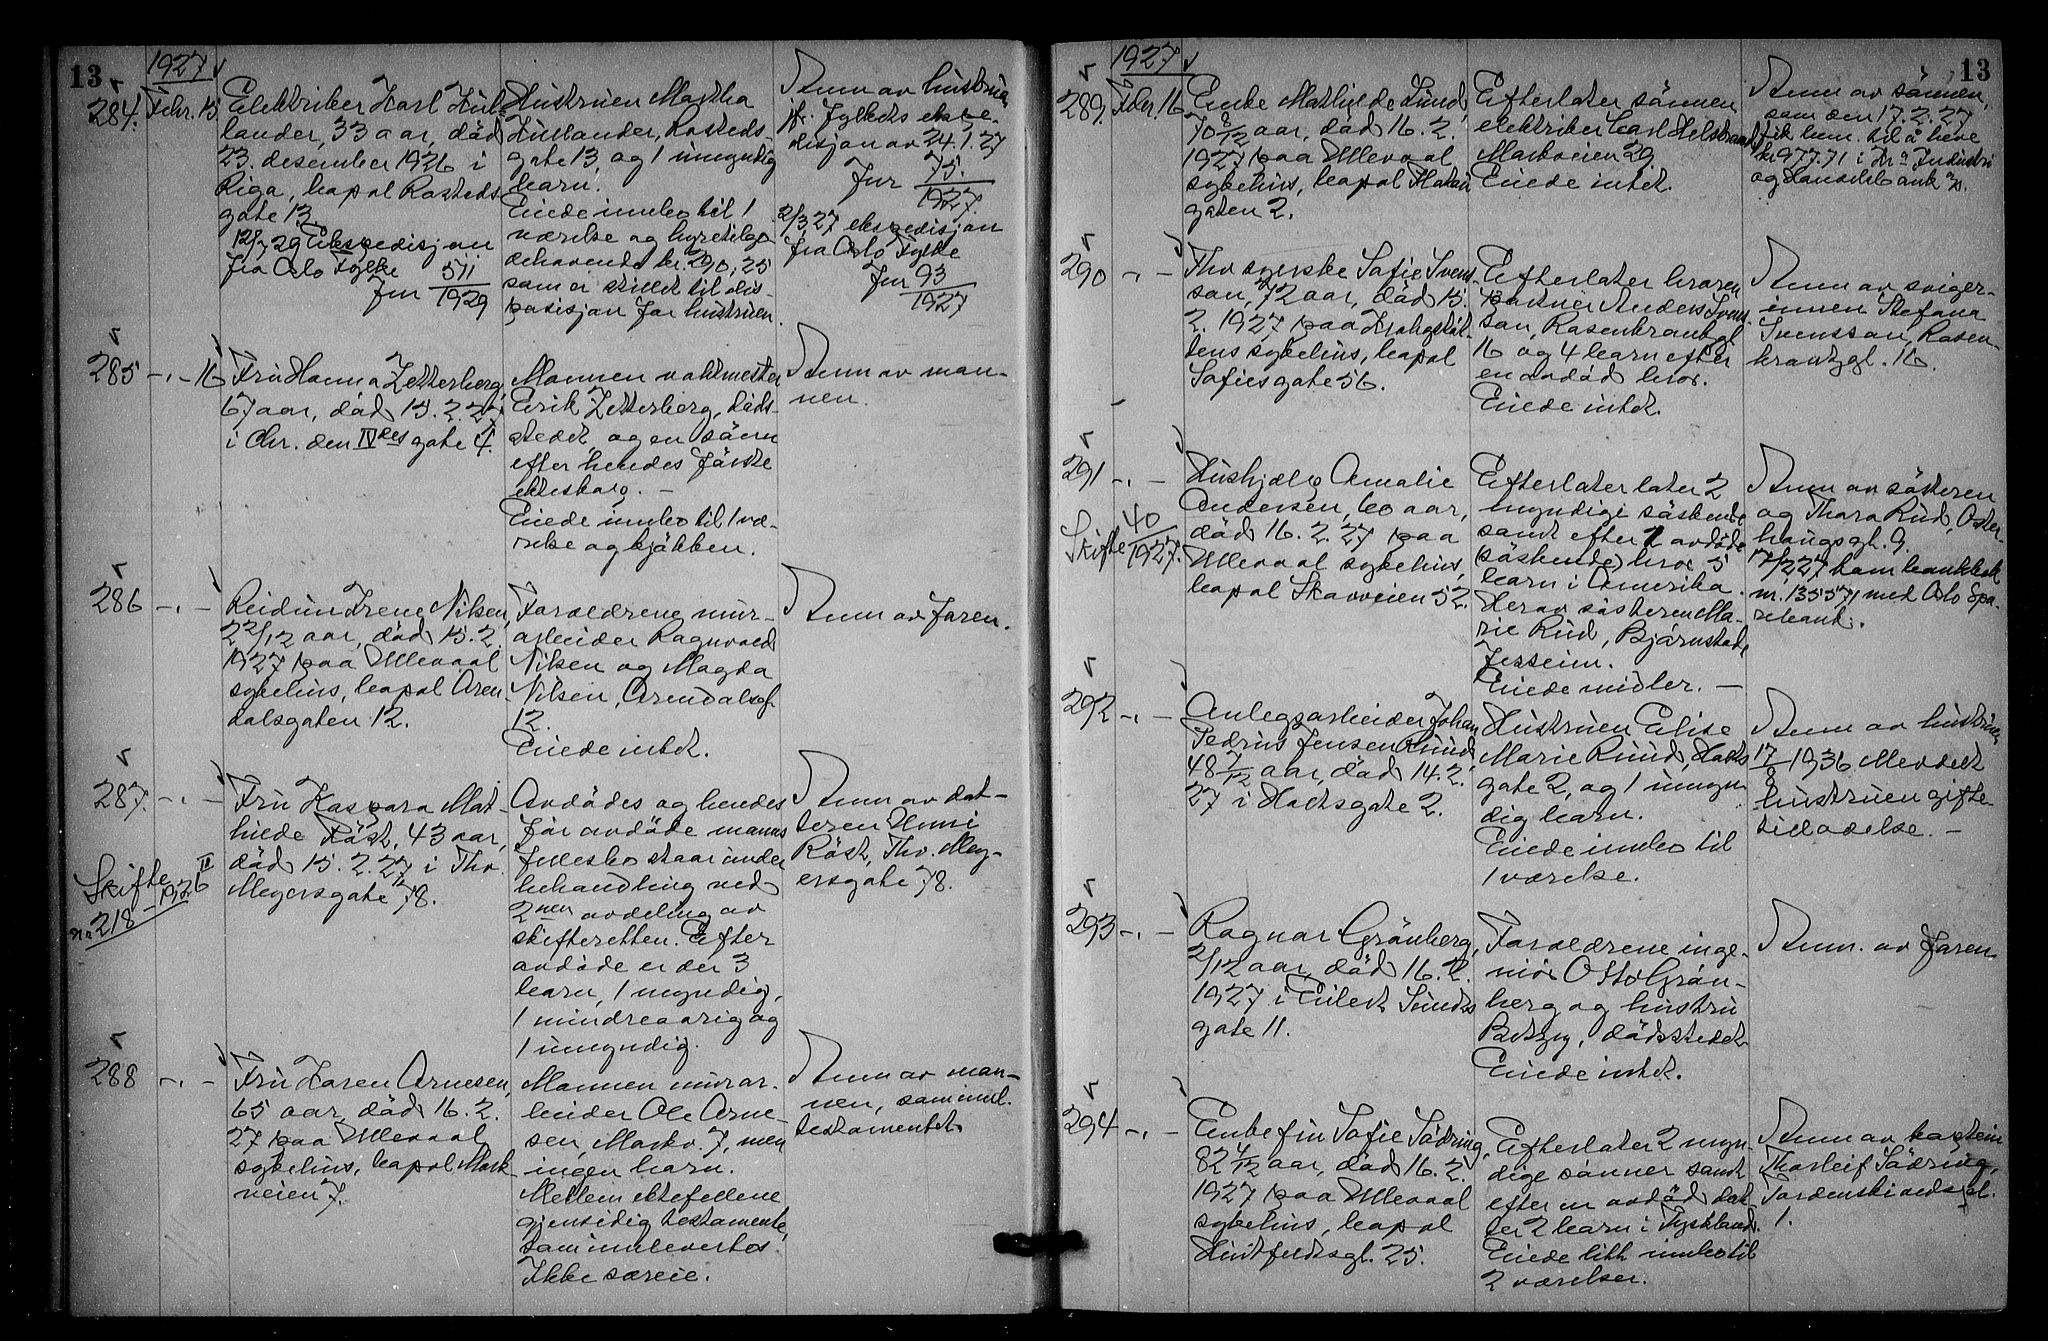 13
1927
284.
Febr. 15
Elektriker Karl Hul-
lander, 33 aar, död
23. desember 1926 i
Riga, bopæl Rosteds
gate 13.
12/7 29 Ekspedisjon
fra Oslo Fylke
Jnr 511/1929
Hustruen Martha
Hullander, Rosteds-
gate 13 og 1 umyndig
barn.
Eiede innbo til 1
værelse og hyretilgo-
dehavende kr. 290,25
som er stillet til dis-
posisjon for hustruen.
Anm av hustrue
jfr. Fylkets ekspe-
disjon av 24.1.27
Jnr 75./1927.
2/3 27 ekspedisjon
fra Oslo Fylke
Jnr 93/1927
285
-"- 16
Fru Hanna Zetterberg,
67 aar, död 15.2.27
i Chr. den IVdes gate 4.
Mannen vaktmester
Erik Zetterberg, döds-
stedet, og en sönn
efter hendes förste
ekteskap. –
Eiede innbo til 1 væ-
relse og kjökken.
Anm av man-
nen.
286
-"- -
Reidun Irene Nilsen,
2 2/12 aar, död 15.2.
1927 paa Ullevaal
sykehus, bopæl Aren-
dalsgaten 12.
Foreldrene mur-
arbeider Ragnvald
Nilsen og Magda
Nilsen, Arendalsgt
12.
Eiede intet.
Anm av faren.
287.
-"- -
Skifte II
nr 218 - 1926
Fru Kaspara Mat-
hilde Röst, 43 aar,
död 15.2.27 i Thv.
Meyersgate 78.
Avdödes og hendes
för avdöde manns
fellesbo staar under
behandling ved
2nen avdeling av
skifteretten. Efter
avdöde er der 3
barn, 1 myndig,
1 mindreaarig og
1 umyndig.
Anm av dat-
teren Unni
Röst, Thv. Mey-
ersgate 78.
288
-"- -
Fru Karen Arnesen,
65 aar, död 16.2.
27 paa Ullevaal
sykehus, bopæl Mark-
veien 7.
Mannen murar-
beider Ole Arne-
sen, Markv. 7, men
ingen barn.
Mellem ektefellene
gjensidig testamente,
som innlevertes.
Ikke særeie.
Anm av man-
nen, som innl.
testamentet
13
1927
289.
Febr. 16
Enke Mathilde Lund,
70 8/12 aar, död 16.2.
1927 paa Ullevaal
sykehus, bopæl
gaten 2.
Efterlater sönnen
elektriker Carl
Markveien 29
Eiede intet.
Anm av sönnen,
som den 17.2.27
fik bem. til å heve
kr 977.71 i Kra Industri
og Handelsbank
290
-"- -
Thv syerske Sofie Svens-
son, 72 aar, död 15.
2. 1927 paa Krohgstöt-
tens sykehus, bopæl
Sofiesgate 56.
Efterlater broren
portner Anders Svens-
son, Rosenkrantzgt
16 og 4 barn efter
en avdöd bror.
Eiede intet.
Anm av sviger-
innen Stefana
Svensson, Rosen-
krantzgt. 16.
291
-"- -
Skifte 40/1927.
Hushjælp Amalie
Andersen, 60 aar,
död 16.2.27 paa
Ullevaal sykehus,
bopæl Skovveien 52.
Efterlater later 2
myndige söskende
samt efter 2 avdöde
söskende hvor 5
barn i Amerika.
Herav söster en Ma-
rie Rud, Bjørnstad,
Jessheim.
Eiede midler. –
Anm av sösteren
og Thora Rud, Oster-
haugsgt. 9.
17/2 27 kom bankbok
nr. 135571 med Oslo Spa-
rebank.
292
-"- -
Anlegsarbeider Johan
Pedrus Jensen Ruud
48 7/12 aar, död 14.2.
27 i Holtsgate 2.
Hustruen Elise
Marie Ruud, Holts
gate 2, og 1 umyn-
dig barn.
Eiede innbo til
1 værelse.
Anm av hustruen
17/8 1936 Meddelt
hustruen gifte-
tilladelse. –
293
-"- -
Ragnar Grönberg,
2/12 aar, död 16.2.
1927 i Eilert Sundts
gate 11.
Foreldrene inge-
niör Otto Grön-
berg og hustru
Betzy, dödsstedet
Eiede intet.
Anm. av faren
294
-"- -
Enkefru Sofie Södring,
82 4/12 aar, död 16.2.
1927 paa Ullevaal
sykehus, bopæl
Huitfeldtsgt. 25.
Efterlater 2 myn-
dige sönner samt
efter en avdöd dat-
ter 2 barn i Tyskland.
Eiede litt innbo til
2 værelser.
Anm av kaptein
Thorleif Södring,
Tordenskioldsgt.
1.